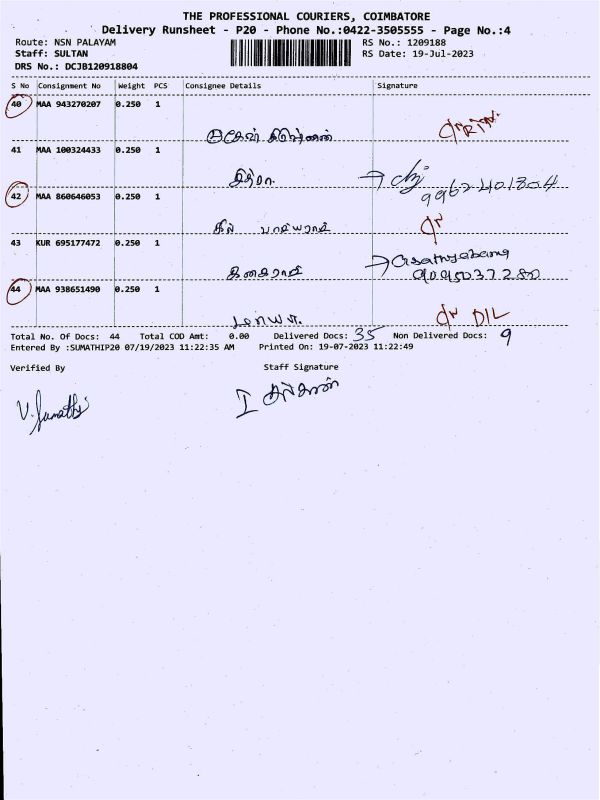 THE PROFESSIONAL COURIERS, COIMBATORE
Delivery Runsheet - P20 - Phone No.:0422-3505555 - Page No.:4
Route: NSN PALAYAM RS No.: 1209188
Staff: SULTAN RS Date: 19-Jul-2023
DRS No.: DCJB120918804
S No Consignment No Weight PCS Consignee Details Signature
40 MAA 943270207 0.250 1
41 MAA 100324433 0.250 1
9962401804
42 MAA 860646053 0.250 1
43 KUR 695177472 0.250 1
44 MAA 938651490 0.250 1
D/L
Total No. Of Docs: 44 Total COD Amt: 0.00 Delivered Docs: 35 Non Delivered Docs: 9
Entered By :SUMATHIP20 07/19/2023 11:22:35 AM Printed On: 19-07-2023 11:22:49
Verified By Staff Signature
V. Sumathi